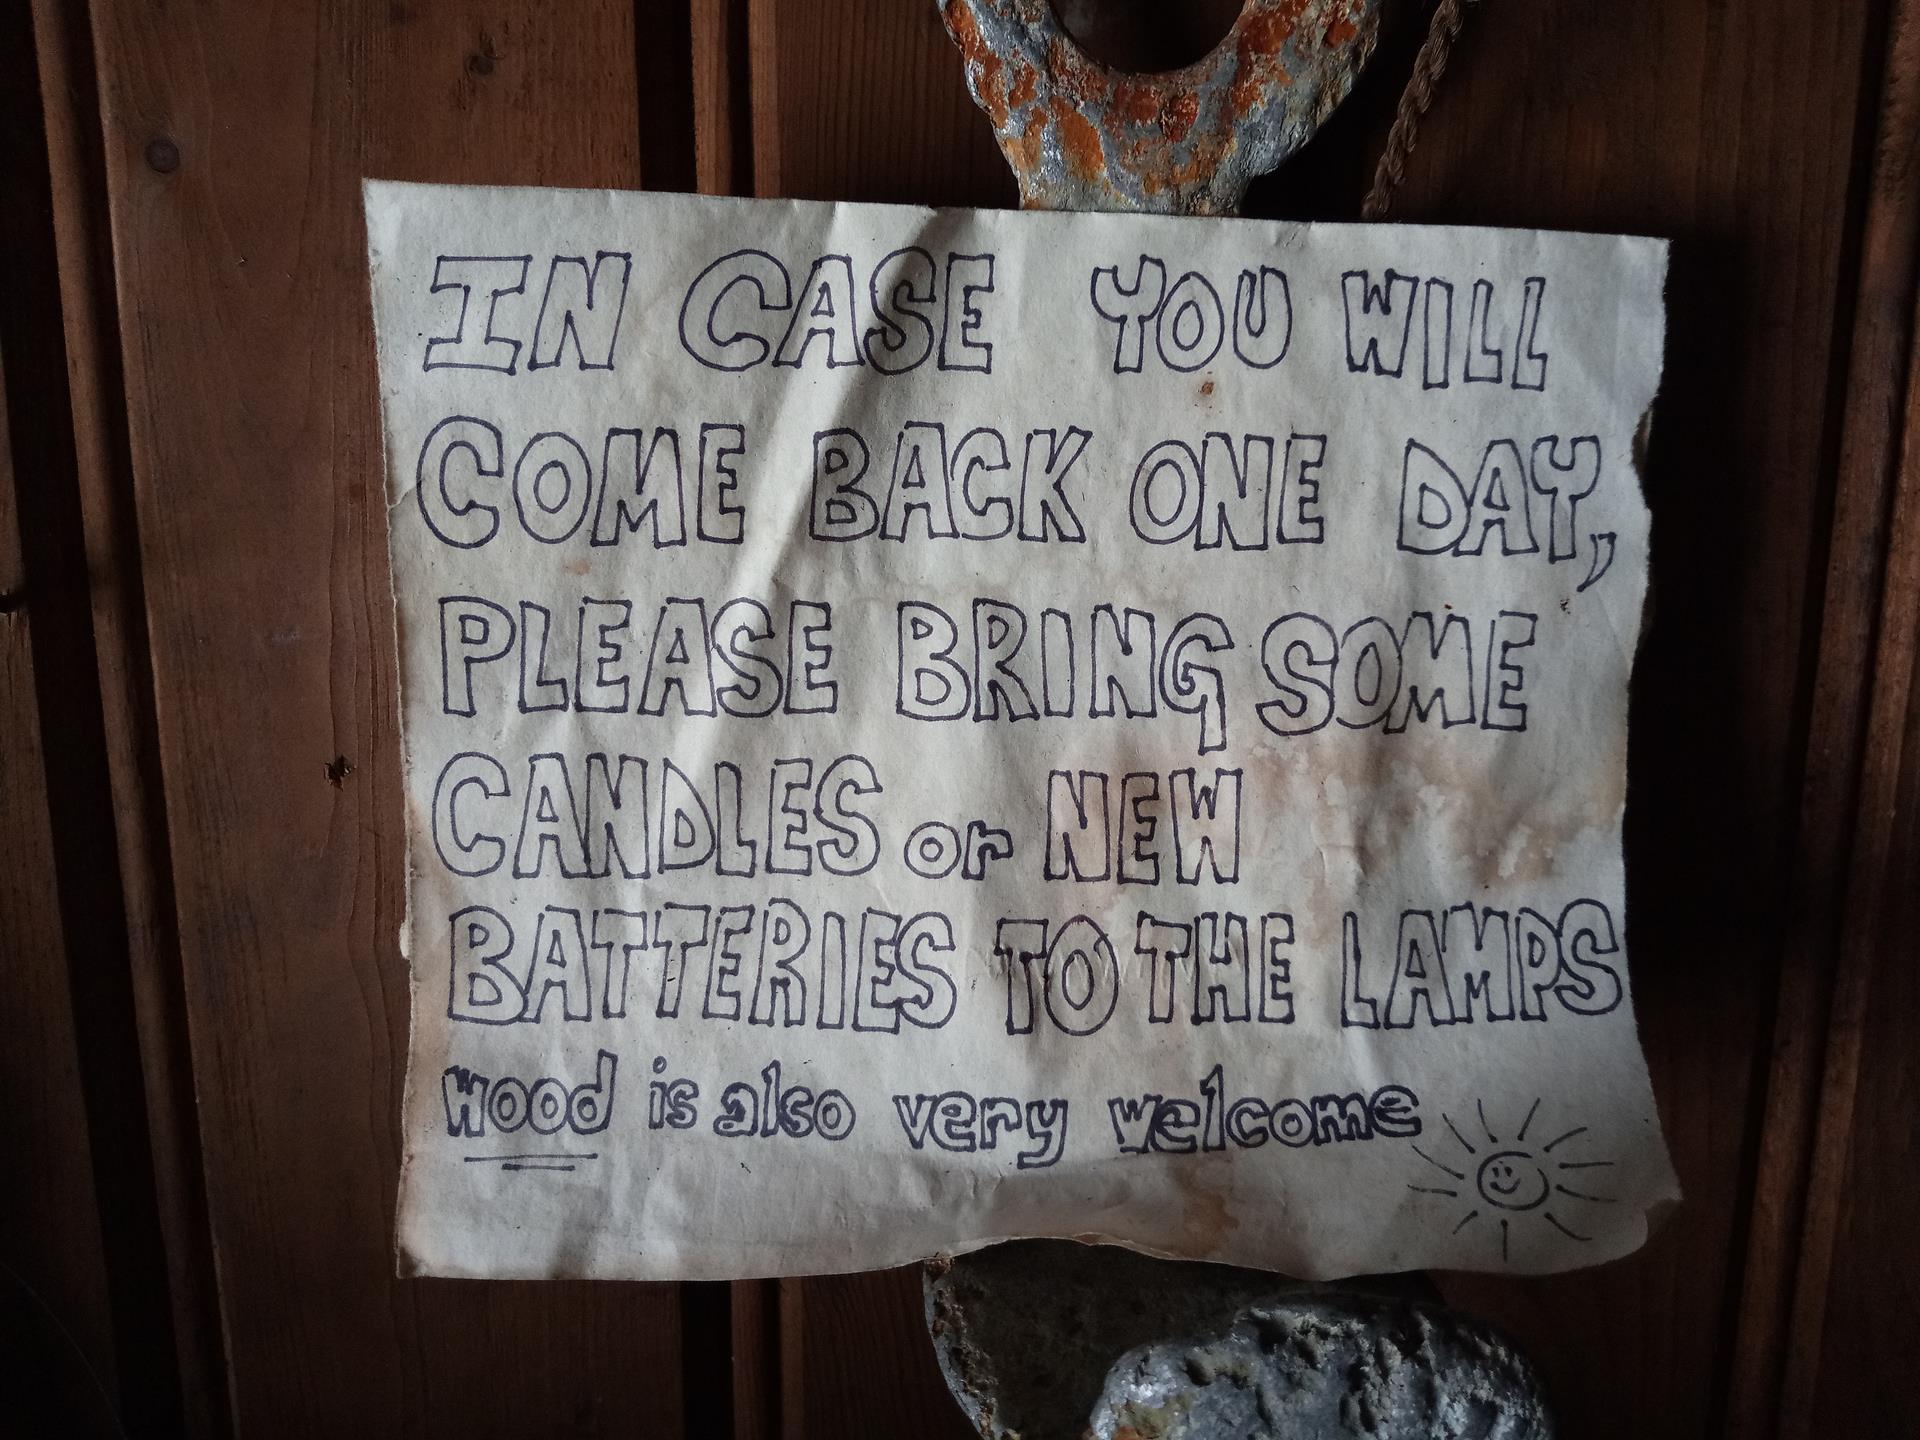 IN CASE YOU WILL
COME BACK ONE DAY,
PLEASE BRING SOME
CANDLES or NEW
BATTERIES TO THE LAMPS
wood is also very welcome